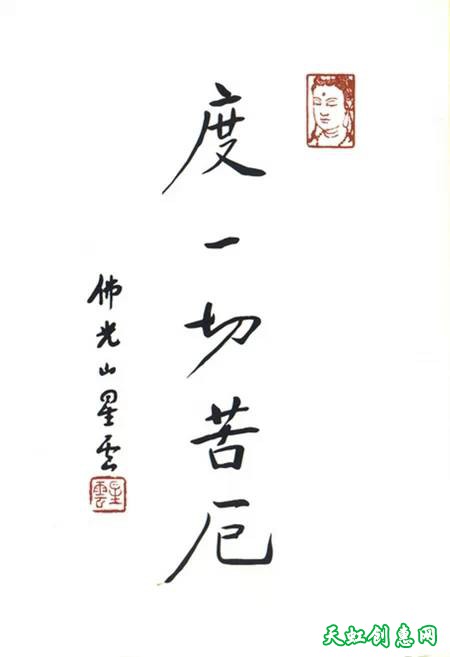 度一切苦厄
佛光山星雲
星雲
天虹创意网